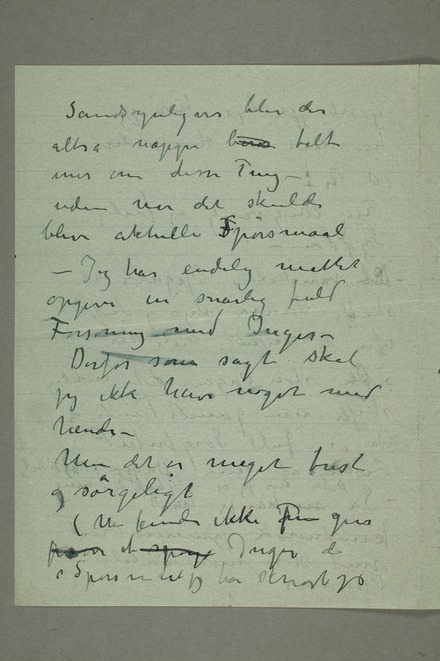 Sandsynligvis blir der
altsa næppe talt
mer om disse Ting –
uden når det skulde
blive aktuelle Spörsmaal
– Jeg har endelig maattet
opgive en snarlig fuld
Forsoning med Inger –
Derfor som sagt skal
jeg ikke have noget med
hende –
Men det er meget trist
og sörgeligt
( ikke
at Inger de
Spörsmaal jeg har